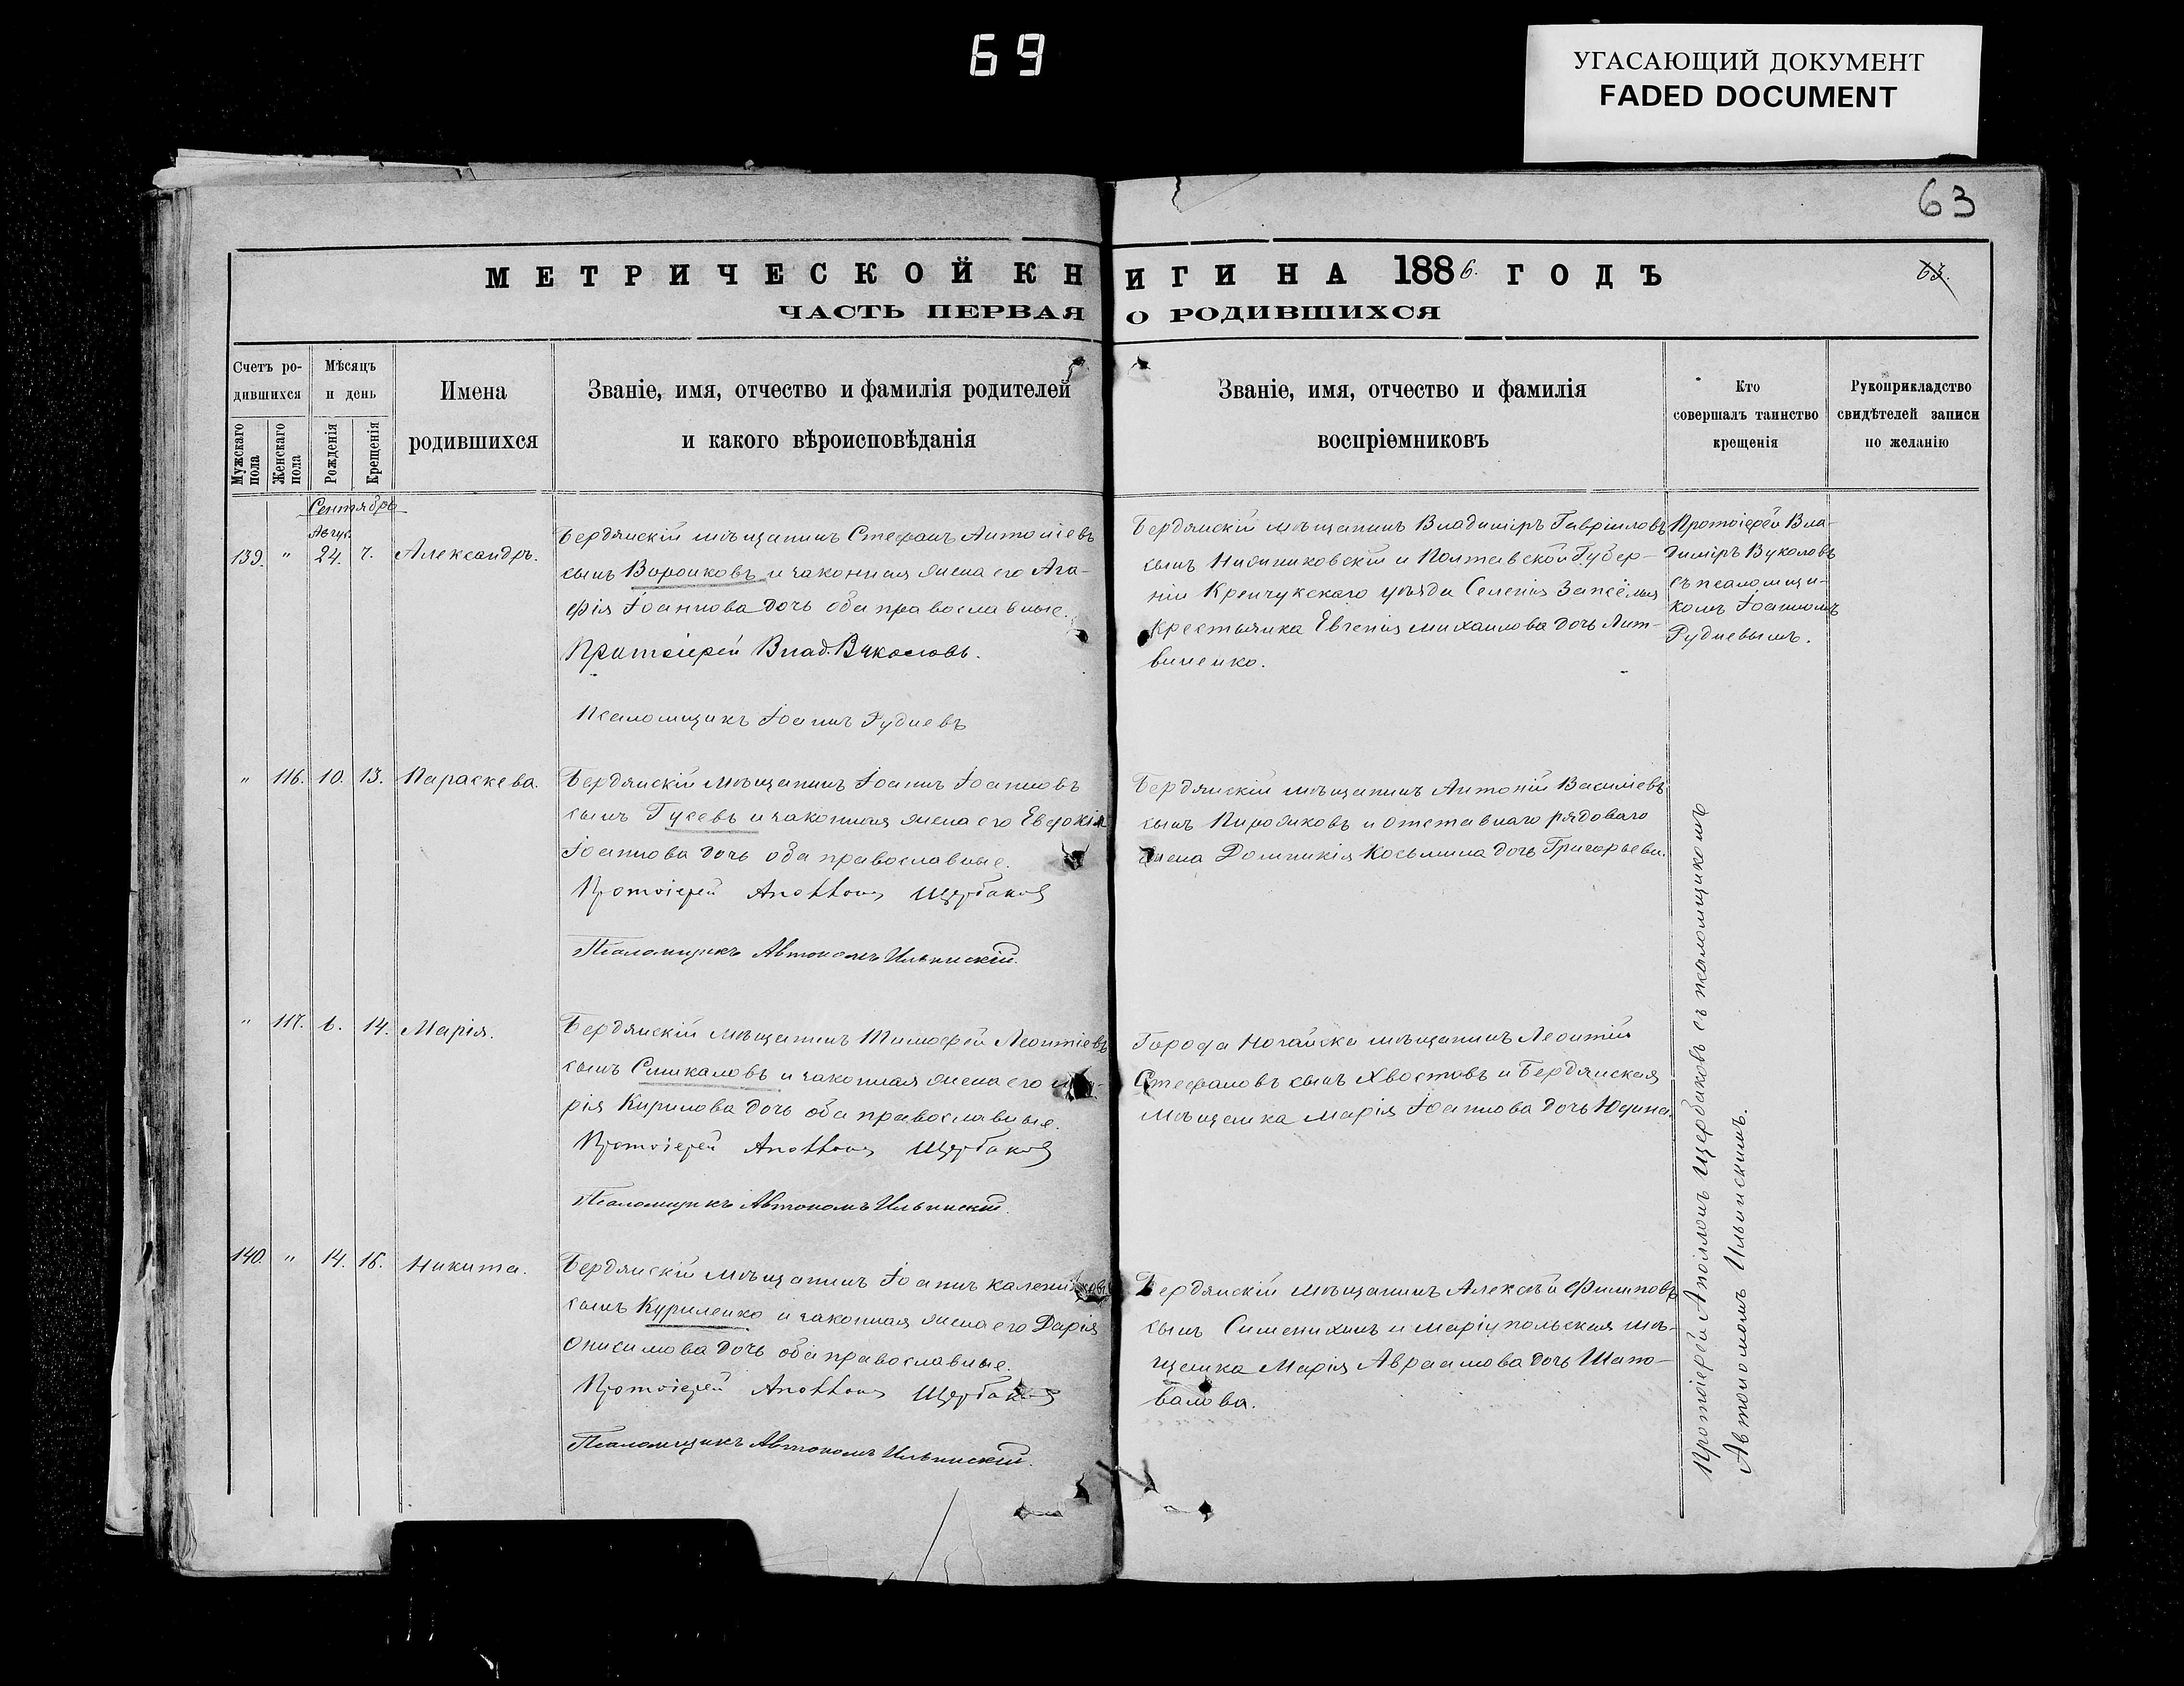 69
УГАСАЮЩИЙ ДОКУМЕНТ
FADED DOCUMENT
63
МЕТРИЧЕСКОЙ КНИГИ НА 1886. ГОДЪ
63.
ЧАСТЬ ПЕРВАЯ О РОДИВШИХСЯ
Счетъ родившихся
Мужскаго пола
Женскаго пола
Мѣсяцъ и день
Рожденія
Крещенія
Имена родившихся
Званіе, имя, отчество и фамилія родителей
и какого вѣроисповѣданія
Званіе, имя, отчество и фамилія
воспріемниковъ
Кто
совершалъ таинство
крещенія
Рукоприкладство
свидѣтелей записи
по желанію
Сентябрь
Авгус.
139. " 24. 7. Александръ.
Бердянскій мѣщанинъ Стефанъ Антоніевъ
сынъ Воронковъ и законная жена его Ага-
фія Іоаннова дочь оба православные.
Протоіерей Влад. Вуколовъ.
Псаломщикъ Іоаннъ Рудневъ
Бердянскій мѣщанинъ Владиміръ Гавріиловъ
сынъ и Полтавской Губер-
ніи Кренчукскаго уѣзда Селенія
Крестьянка Евгенія Михаилова дочь Лит-
виненко.
Протоіерей Вла-
диміръ Вуколовъ
съ псаломщи-
комъ Іоанномъ
Рудневымъ.
" 116. 10. 13. Параскева.
Бердянскій мѣщанинъ Іоаннъ Іоанновъ
сынъ Гусевъ и законная жена его Евдокія
Іоаннова дочь оба православные.
Протоіерей Аполлонъ Щербаковъ
Псаломщикъ Автономъ Ильинскій.
Бердянскій мѣщанинъ Антоній Василіевъ
сынъ Пирожковъ и отставнаго рядоваго
жена Домникія Косьмина дочь Григорьева.
" 117. 6. 14. Марія.
Бердянскій мѣщанинъ Тимофей Леонтіевъ
сынъ и законная жена его Ма-
рія Кирилова дочь оба православные.
Протоіерей Аполлонъ Щербаковъ
Псаломщикъ Автономъ Ильинскій.
Города Ногайска мѣщанинъ Леонтій
Стефановъ сынъ Хвостовъ и Бердянская
мѣщанка Марія Іоаннова дочь Юдина.
140. " 14. 16. Никита.
Бердянскій мѣщанинъ Іоаннъ
сынъ Куриленко и законная жена его Дарія
Онисимова дочь оба православные.
Протоіерей Аполлонъ Щербаковъ
Псаломщикъ Автономъ Ильинскій.
Бердянскій мѣщанинъ Алексѣй Филиповъ
сынъ Сименихинъ и Маріупольская мѣ-
щанка Марія Авраамова дочь Шапо-
валова.
Протоіерей Аполлонъ Щербаковъ съ псаломщикомъ
Автономомъ Ильинскимъ.